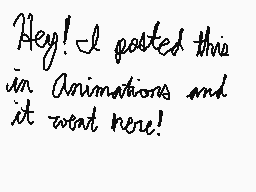 Hey! I posted this
in Animations and
it went here!